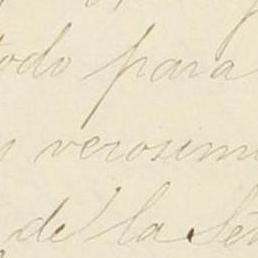 todo para
verosim
de la Se